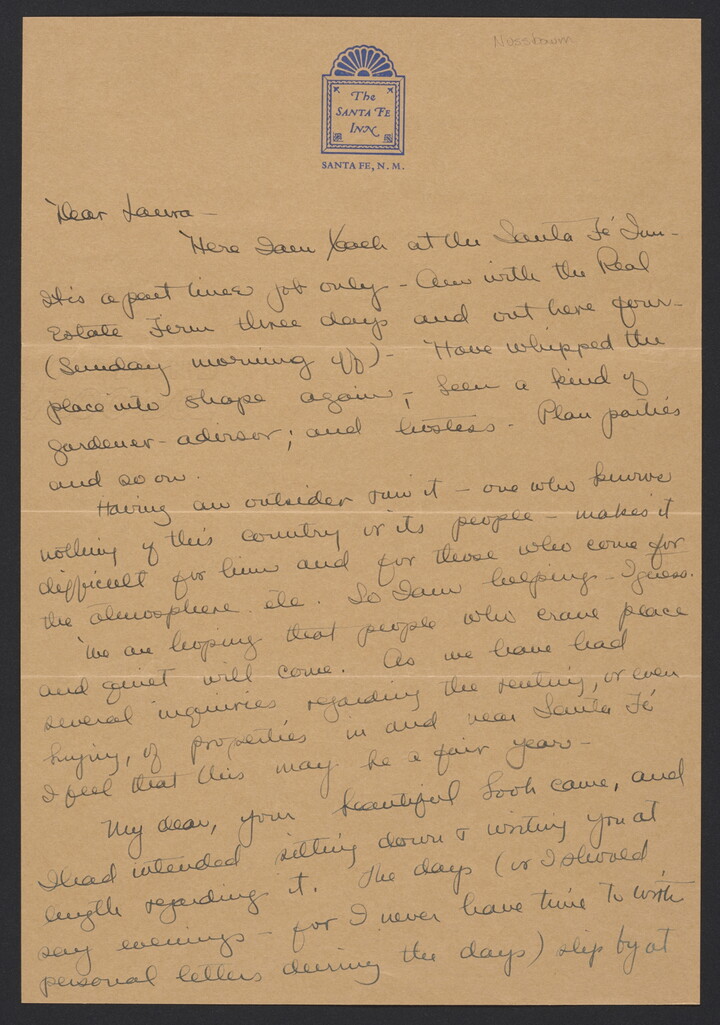 Nussbaum
The
SANTA FE
INN
SANTA FE, N. M.
Dear Laura -
Here I am back at the Santa Fé Inn -
It is a part time job only - Am with the Real
Estate Firm three days and out here four -
(Sunday morning off) - Have whipped the
place into shape again; been a kind of
gardener - advisor; and hostess - Plan parties
and so on.
Having an outsider run it - one who knows
nothing of this country or its people - makes it
difficult for him and for those who come for
the atmosphere etc. So I am helping - I guess.
We are hoping that people who crave peace
and quiet will come. As we have had
several inquiries regarding the renting, or even
buying, of properties in and near Santa Fé
I feel that this may be a fair year -
My dear, your beautiful book came, and
I had intended sitting down & writing you at
length regarding it. The days (or I should
say evenings - for I never have time to write
personal letters during the days) slip by at